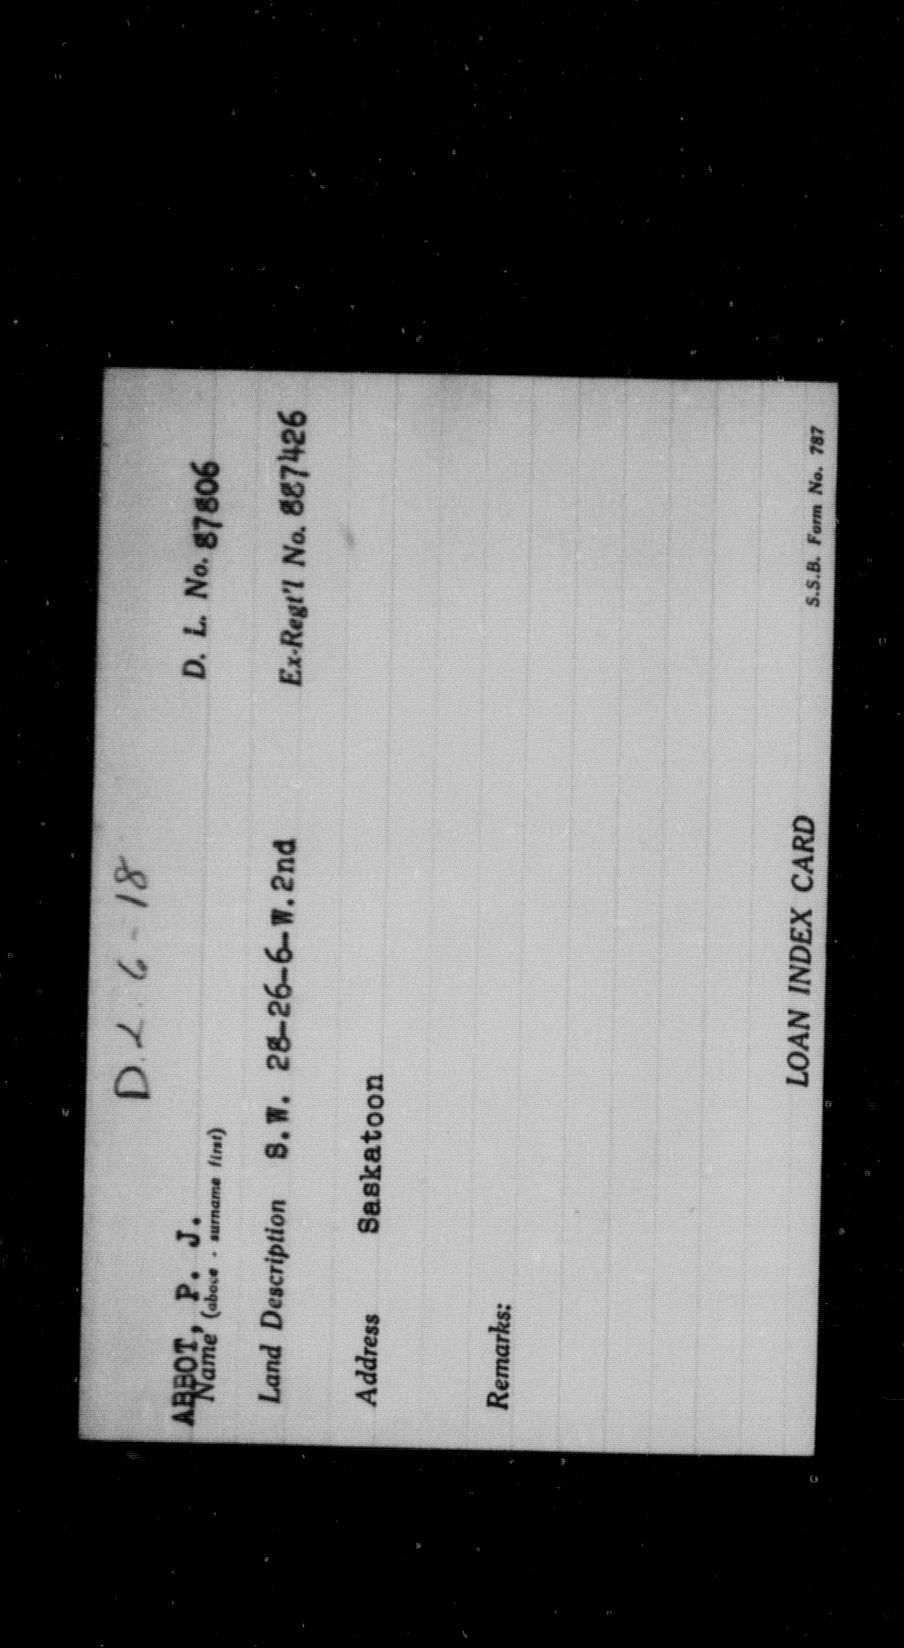 D.L. 6-18
ABBOT, P. J. D. L. No. 87806
Name (above - surname first)
Land Description S.W. 28-26-6-W.2nd Ex-Regt'l No. 887426
Address Saskatoon
Remarks:
LOAN INDEX CARD S.S.B. Form No. 787